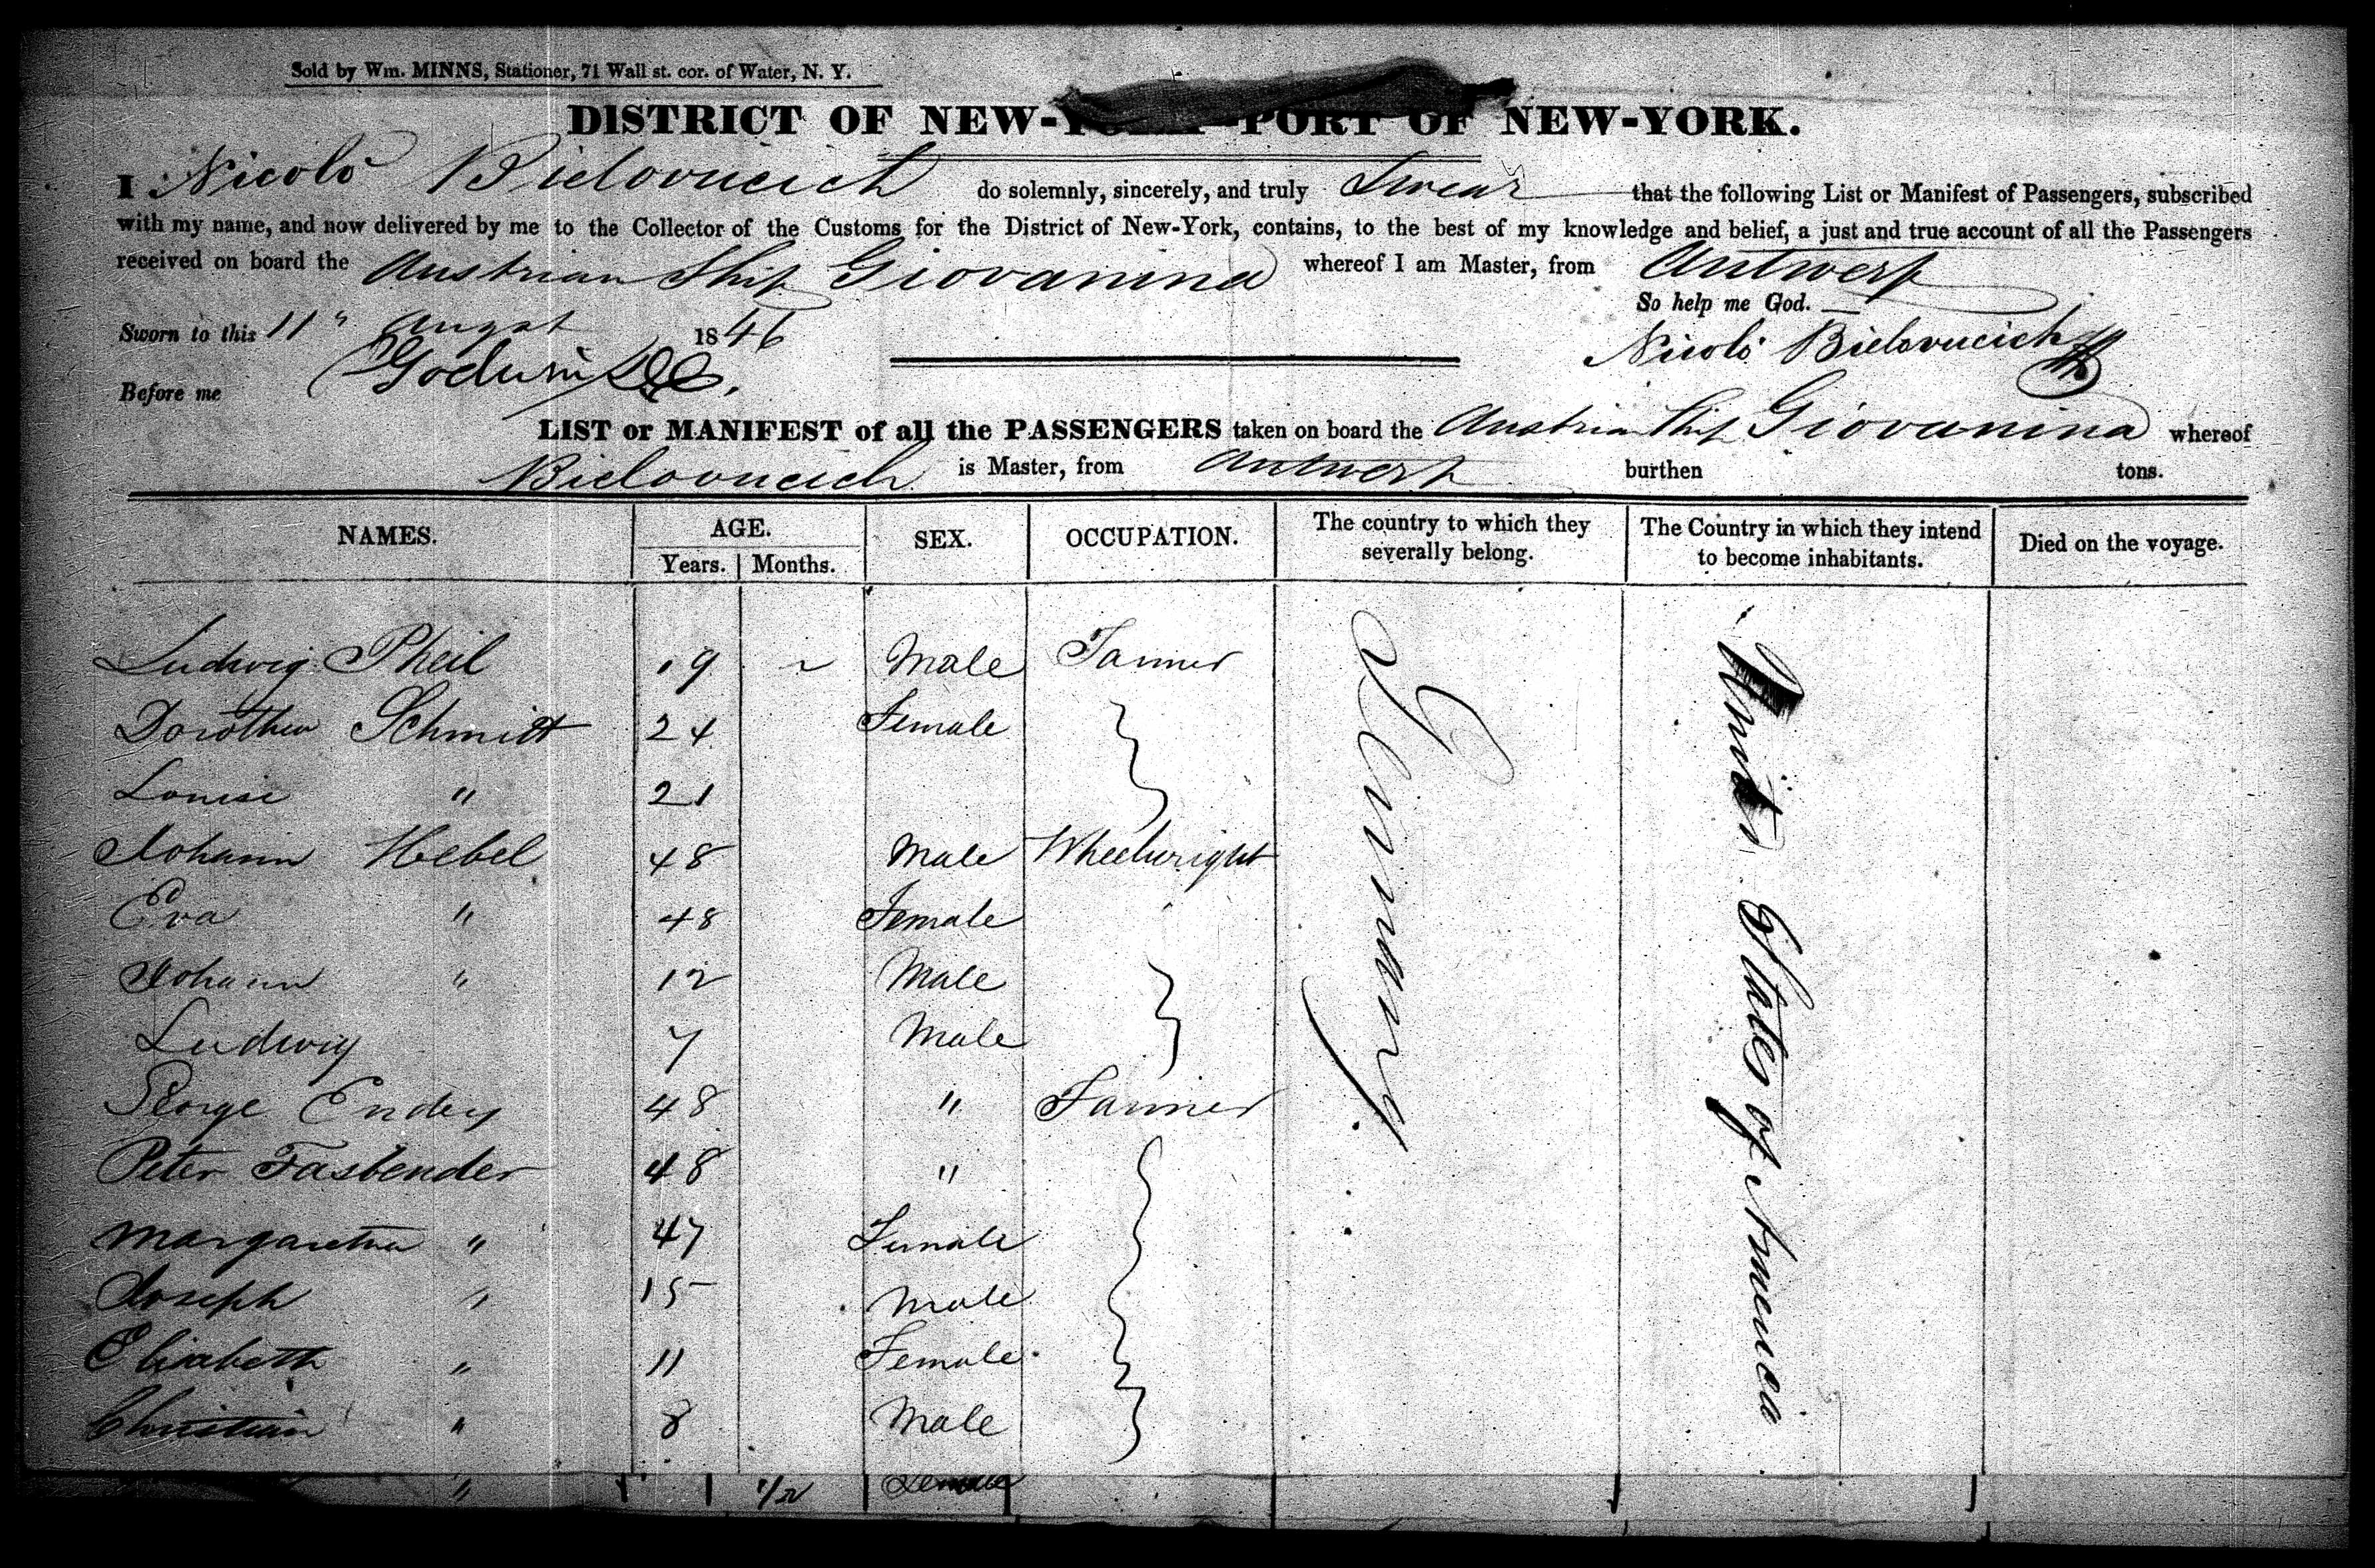 Sold by Wm. MINNS, Stationer, 71 Wall st. cor. of Water, N. Y.
DISTRICT OF NEW-YORK—PORT OF NEW-YORK.
I Nicoló Bielovucich do solemnly, sincerely, and truly Swear that the following List or Manifest of Passengers, subscribed
with my name, and now delivered by me to the Collector of the Customs for the District of New-York, contains, to the best of my knowledge and belief, a just and true account of all the Passengers
received on board the Austrian Ship Giovanina whereof I am Master, from Antwerp
So help me God.
Sworn to this 11" Augst 1846
Nicoló Bielovucich
Before me Godwin
LIST or MANIFEST of all the PASSENGERS taken on board the Austrian Ship Giovanina whereof
Bielovucich is Master, from Antwerp burthen tons.
NAMES. AGE. Years. Months. SEX. OCCUPATION. The country to which they severally belong. The Country in which they intend to become inhabitants. Died on the voyage.
Ludwig Pheil 19 Male Farmer
Dorothea Schmitt 24 Female
Louise " 21
Johann Hebel 48 Male Wheelwright
Eva " 48 Female
Johann " 12 Male
Ludwig 7 Male
George Enders 48 " Farmer
Peter Fasbender 48 "
Margaretha " 47 Female
Joseph " 15 Male
Elisabeth " 11 Female
Christian " 8 Male
" 1/2 Female
Germany
United States of America